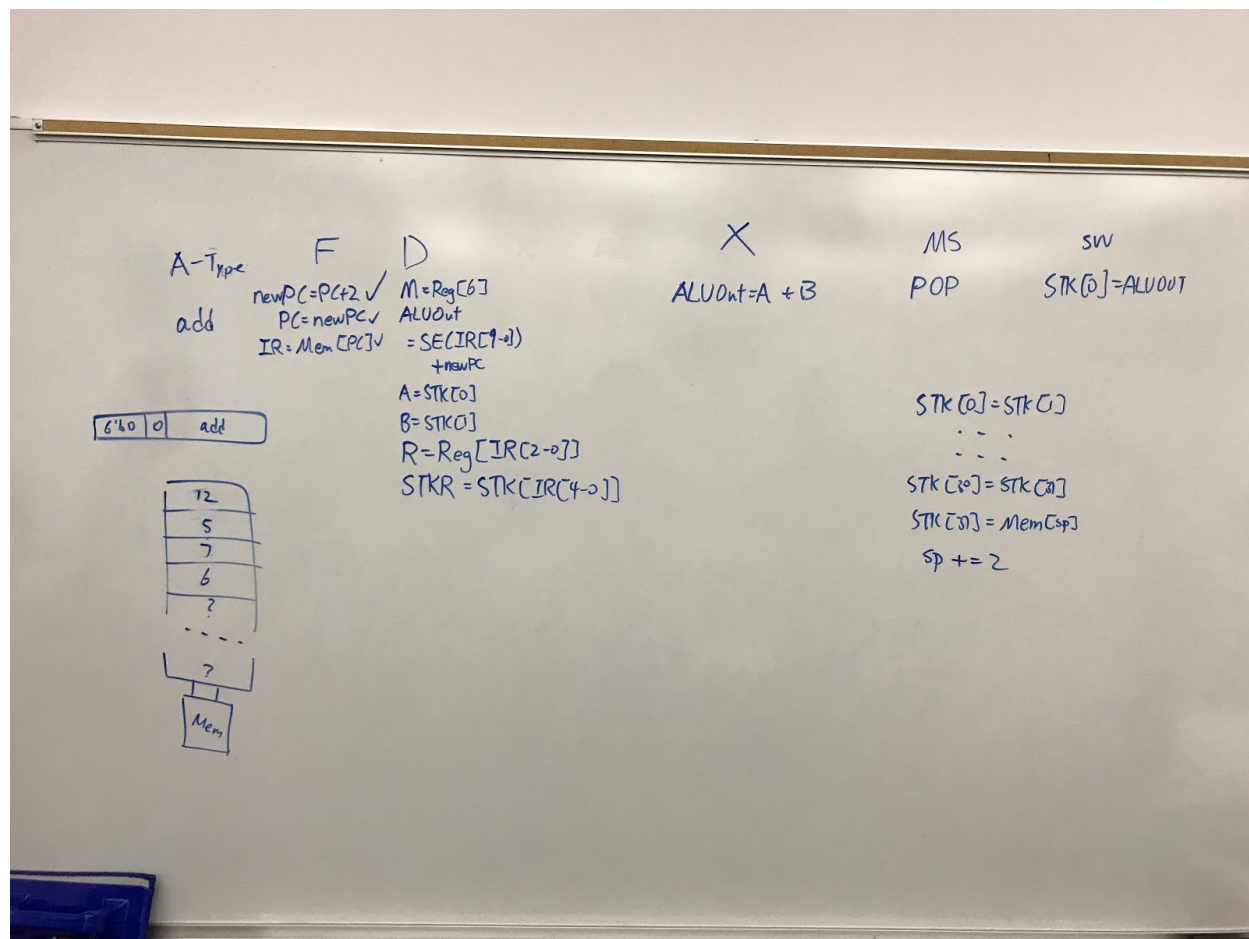 A-Type
add
F
newPC=PC+2 ✓
PC=newPC ✓
IR=Mem[PC] ✓
D
M=Reg[6]
ALUOut
=SE(IR[9-0])
+newPC
A=STK[0]
B=STK[1]
R=Reg[IR[2-0]]
STKR=STK[IR[4-0]]
X
ALUOut=A+B
MS
POP
STK[0]=STK[1]
. . .
. . .
STK[30]=STK[31]
STK[31]=Mem[sp]
sp += 2
SW
STK[0]=ALUOUT
6'b0 0 add
12
5
7
6
?
. . . .
?
Mem